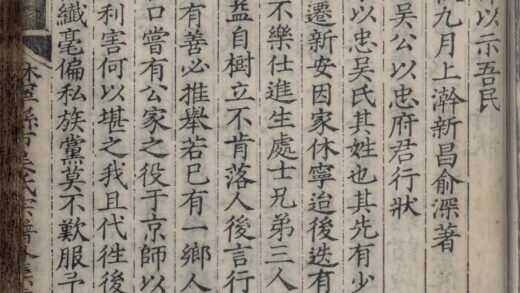 以示吾民
九月上澣新昌俞深著
吳公以忠府君行狀
以忠吳氏其姓也其先有少
遷新安因家休寧迨後迭有
不樂仕進生處士兄弟三人
益自樹立不肯落人後言行
有善必推舉若已有一鄉人
口嘗有公家之役于京師以
利害何以堪之我且代徃後
纖毫偏私族黨莫不歎服予
休寧縣市吳氏宗譜